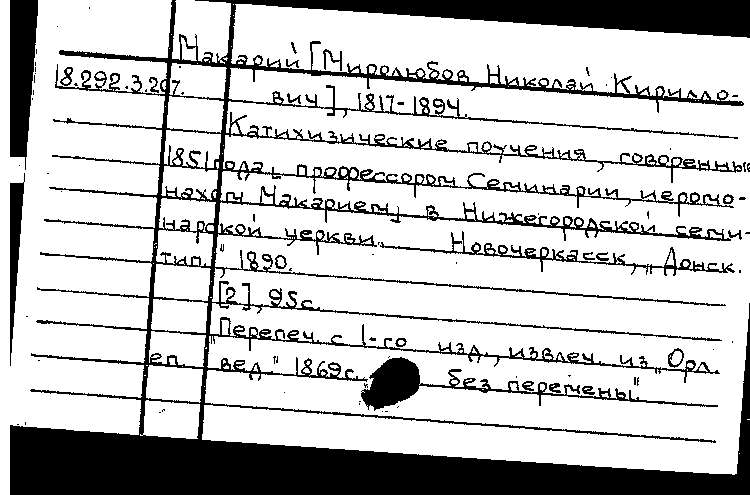 Макарий [Миролюбов, Николай Кирилло-
18.292.3.207. вич], 1817-1894.
Катихизические поучения, говоренные
1851 года, профессором Семинарии, иеромо-
нахом Макарием, в Нижегородской семи-
нарской церкви. Новочеркасск, "Донск.
тип.", 1890.
[2], 95с.
"Перепеч. с 1-го изд., извлеч. из "Орл.
еп. вед" 1869г. без перемены".